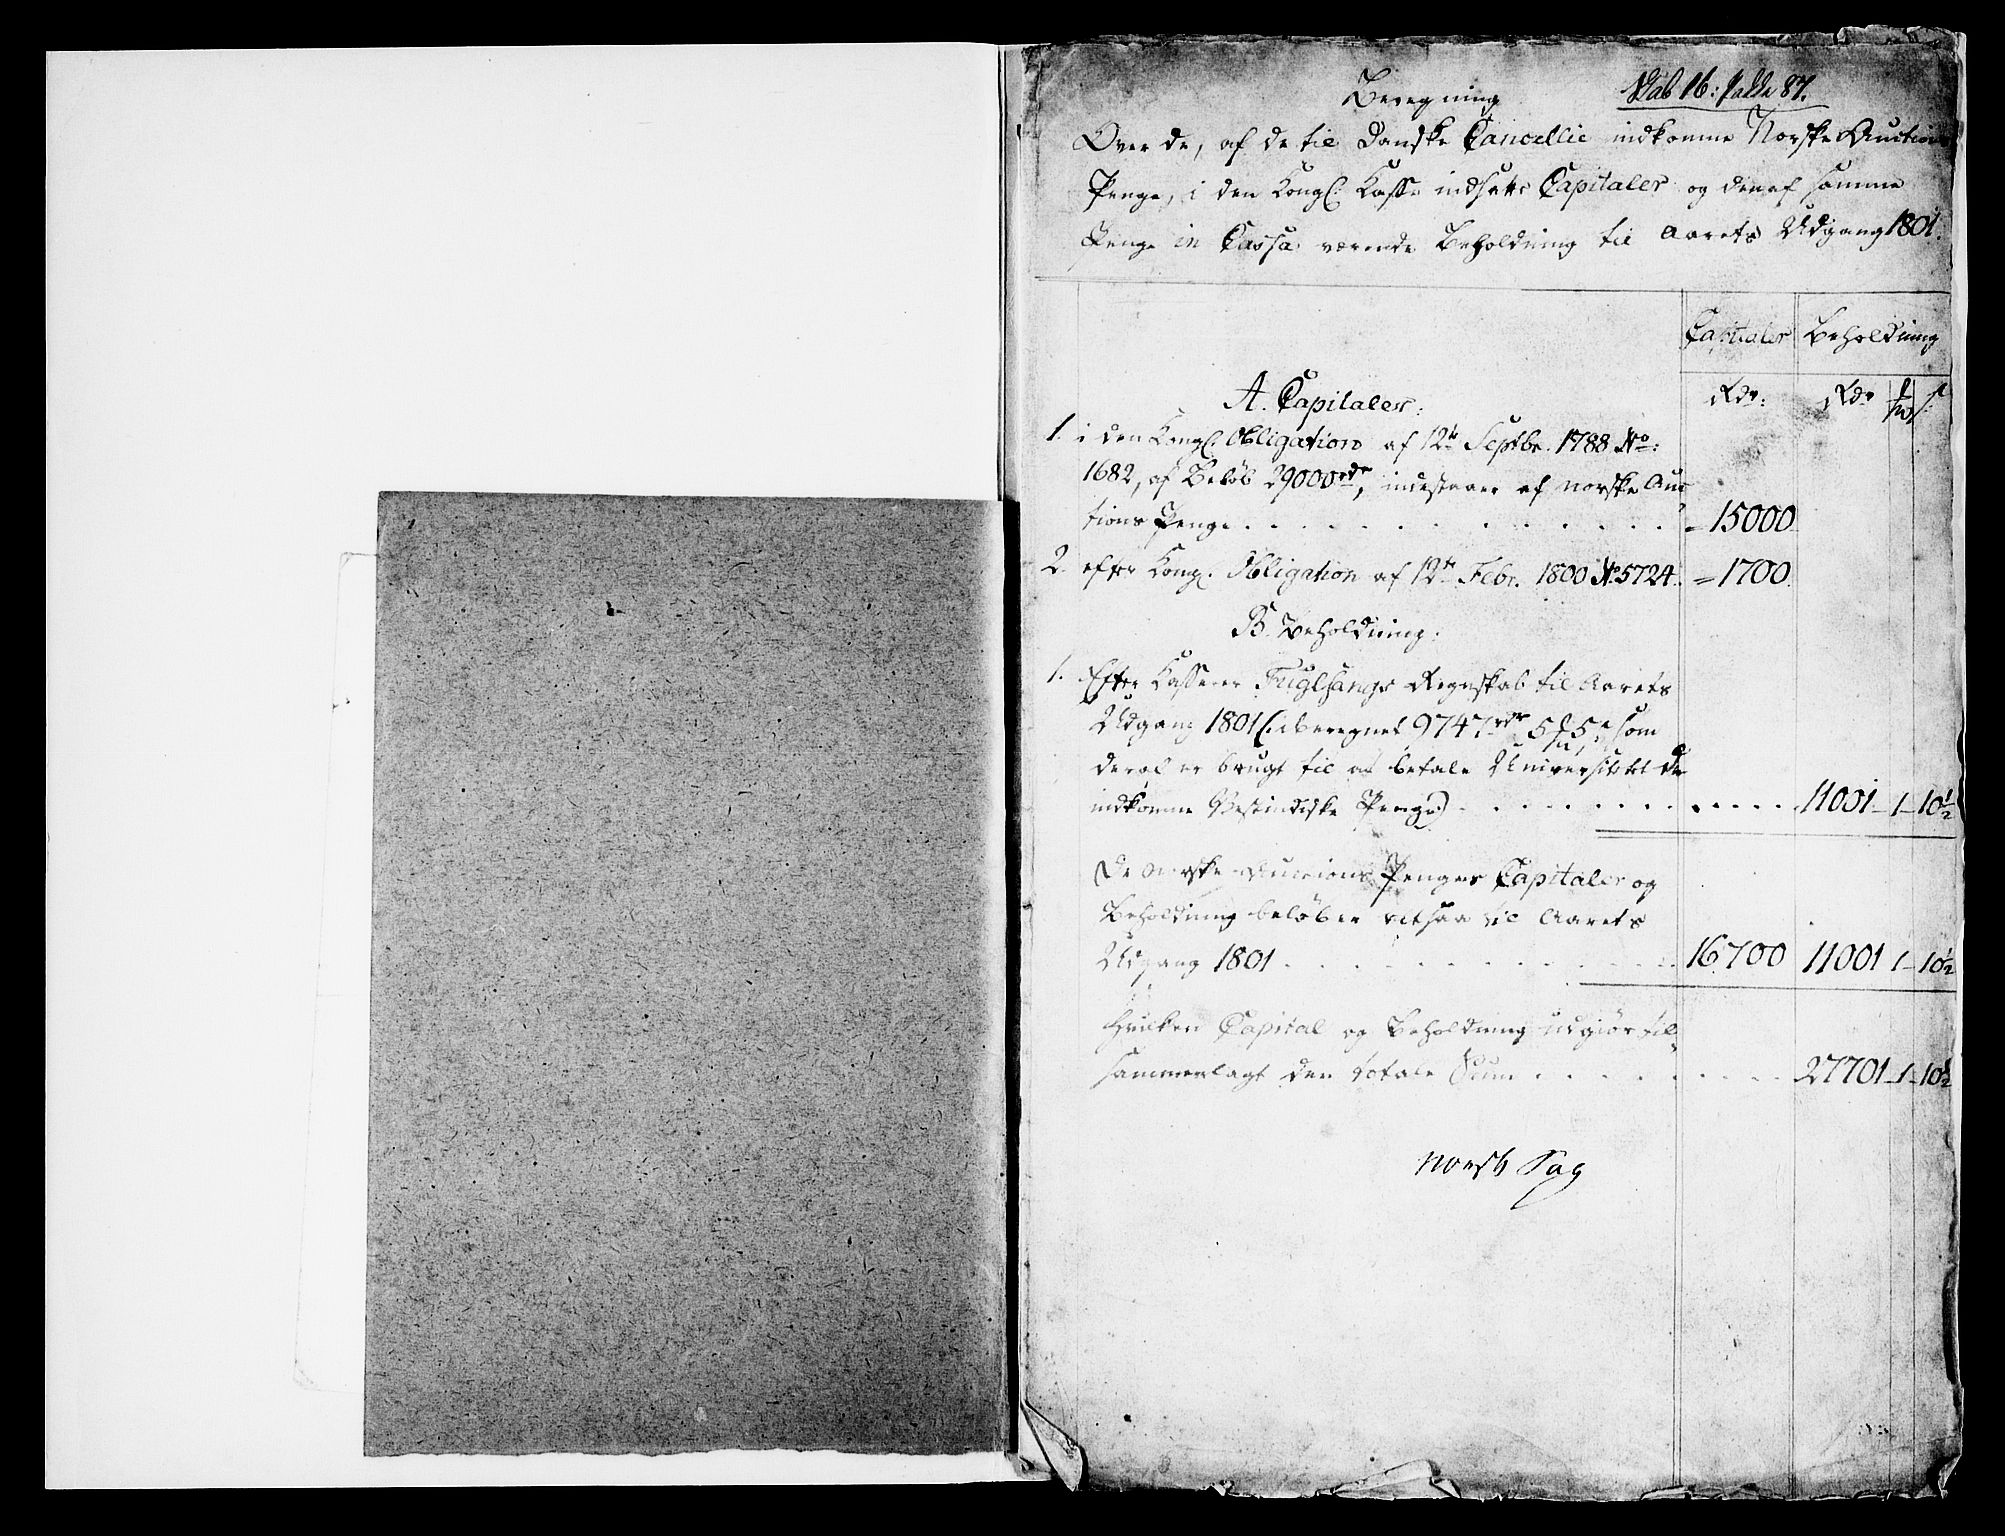 Beregning
Skab 16: Pakke 87.
Over de, af de til Danske Cancellie indkomne Norske Auctions
Penge, i den Kongl. Kasse indsatte Capitaler og den af samme
Penge in Cassa værende Beholdning til Aarets Udgang 1801.
Capitaler Beholdning
A. Capitaler: Rdr: Rdr
1. i den Kongl. Obligation af 12te Septbr. 1788 No:
1682, af Beløb 29000rdr, indestaaer af norske Auc
tions Penge . . . . . . . . . = 15000
2. efter Kongl. Obligation af 12te Febr. 1800 No 5724. = 1700.
B. Beholdning:
1. Efter Kasserer Fuglsangs Regnskab til Aarets
Udgang 1801 (: iberegnet 9747rdr 5 5 som
deraf er brugt til at betale Universitetet de
indkomne Vestindiske Penge:) . . . . . . . . 11001 - 1 - 10½
De norske Auctions Penges Capitaler og
Beholdning beløber altsaa til Aarets
Udgang 1801 . . . . . . . . . 16700 11001 1 - 10½
Hvilken Capital og Beholdning udgiør til-
sammenlagt den totale Sum . . . . . . . 27701 - 1 - 10½
Norsk Sag